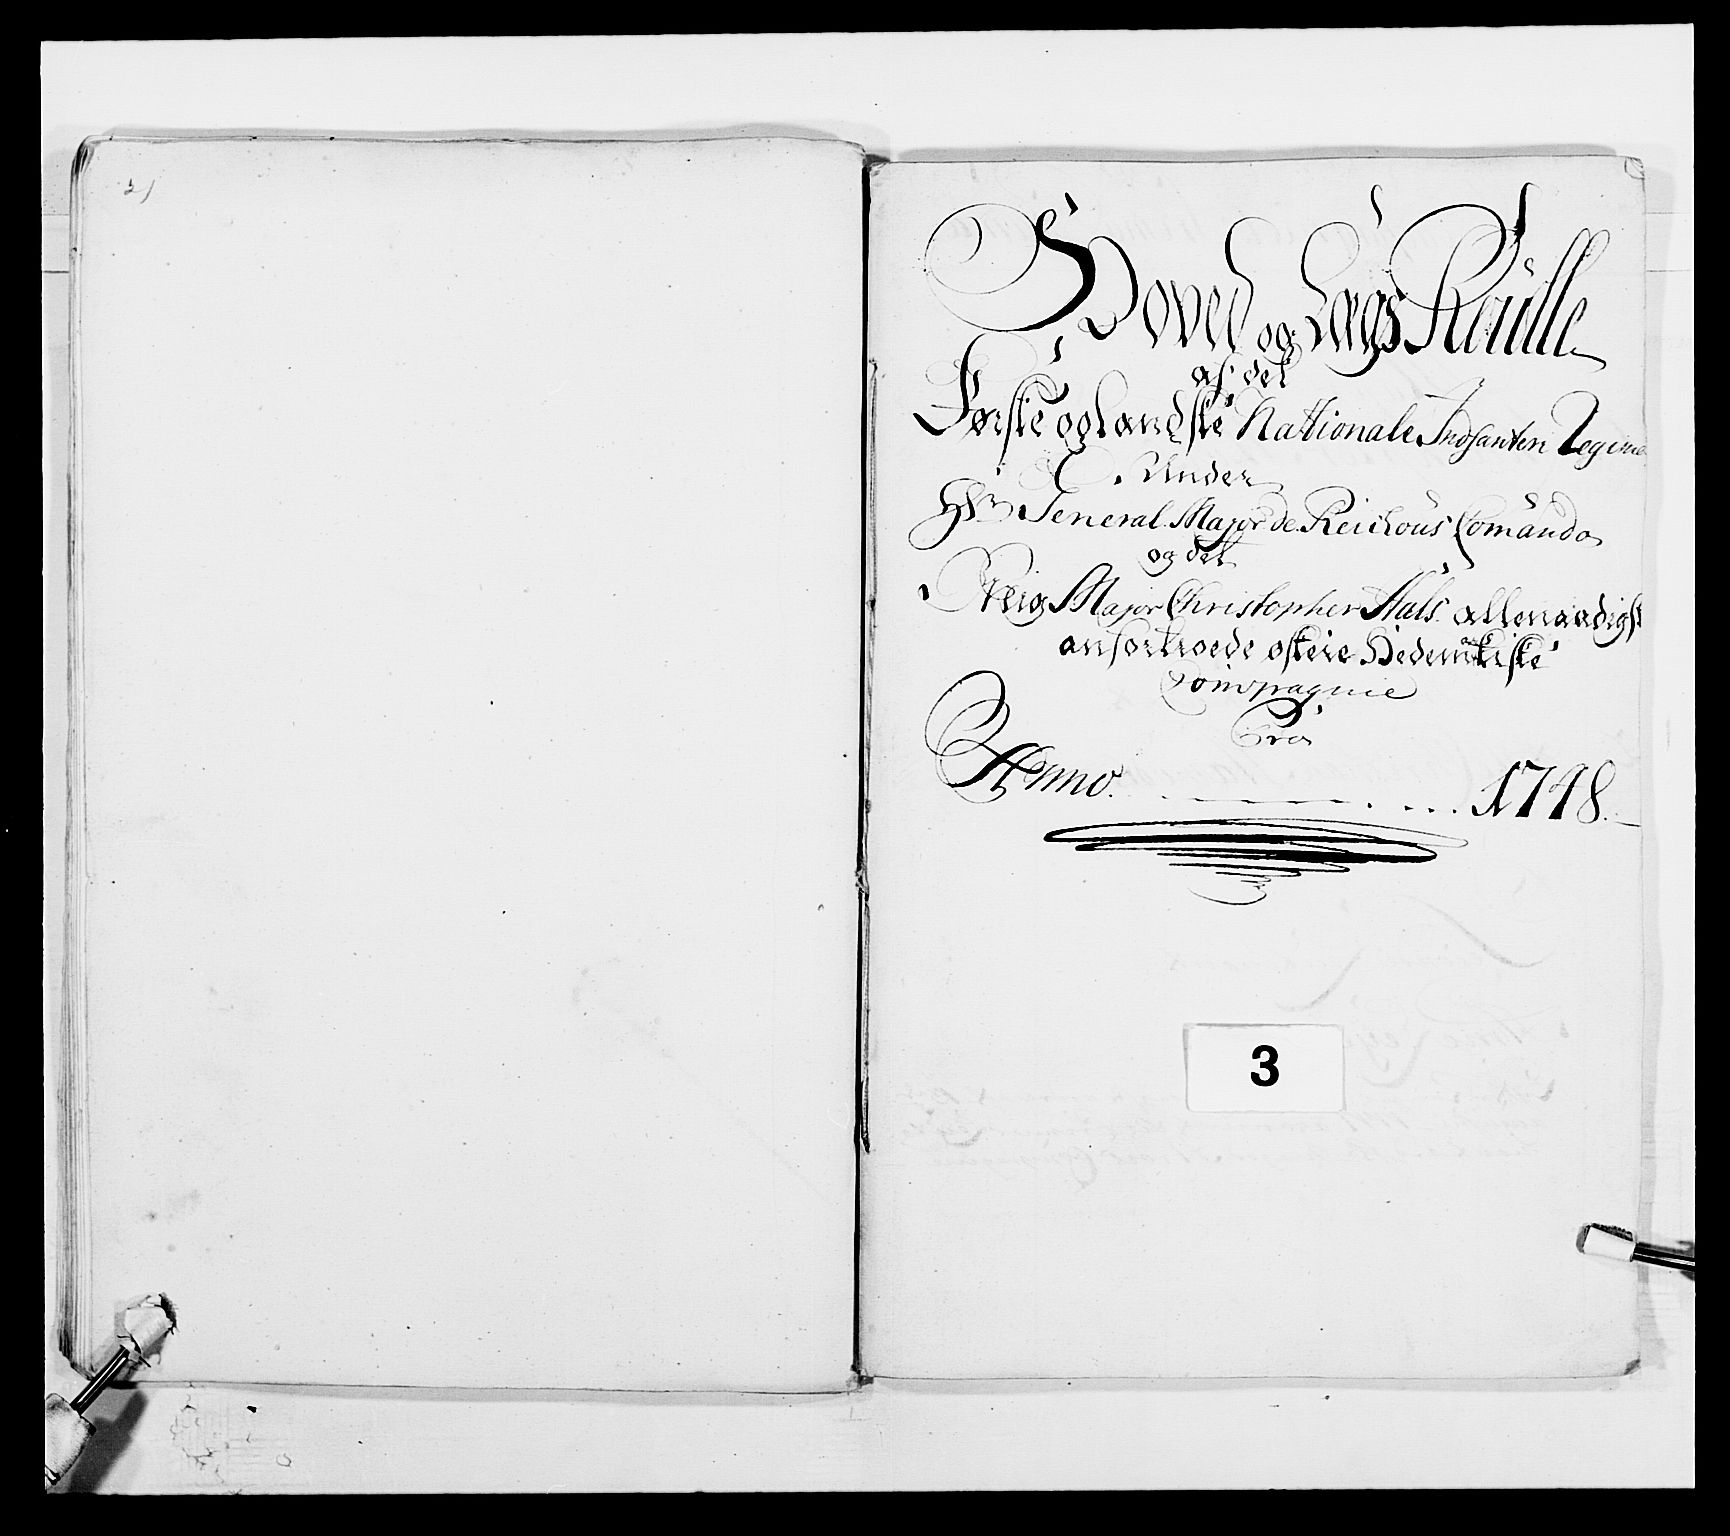 21
Hoved og Lægs Roulle
af det
Første oplandske Nationale Infanteri Regime
Under
Hr General Major de Reichous Comando
og det
Major Christopher Hals allernaadigst
anfortroede østere Hedemarkiske
Compagnie
Pro
Anno. . . . . 1748.
3